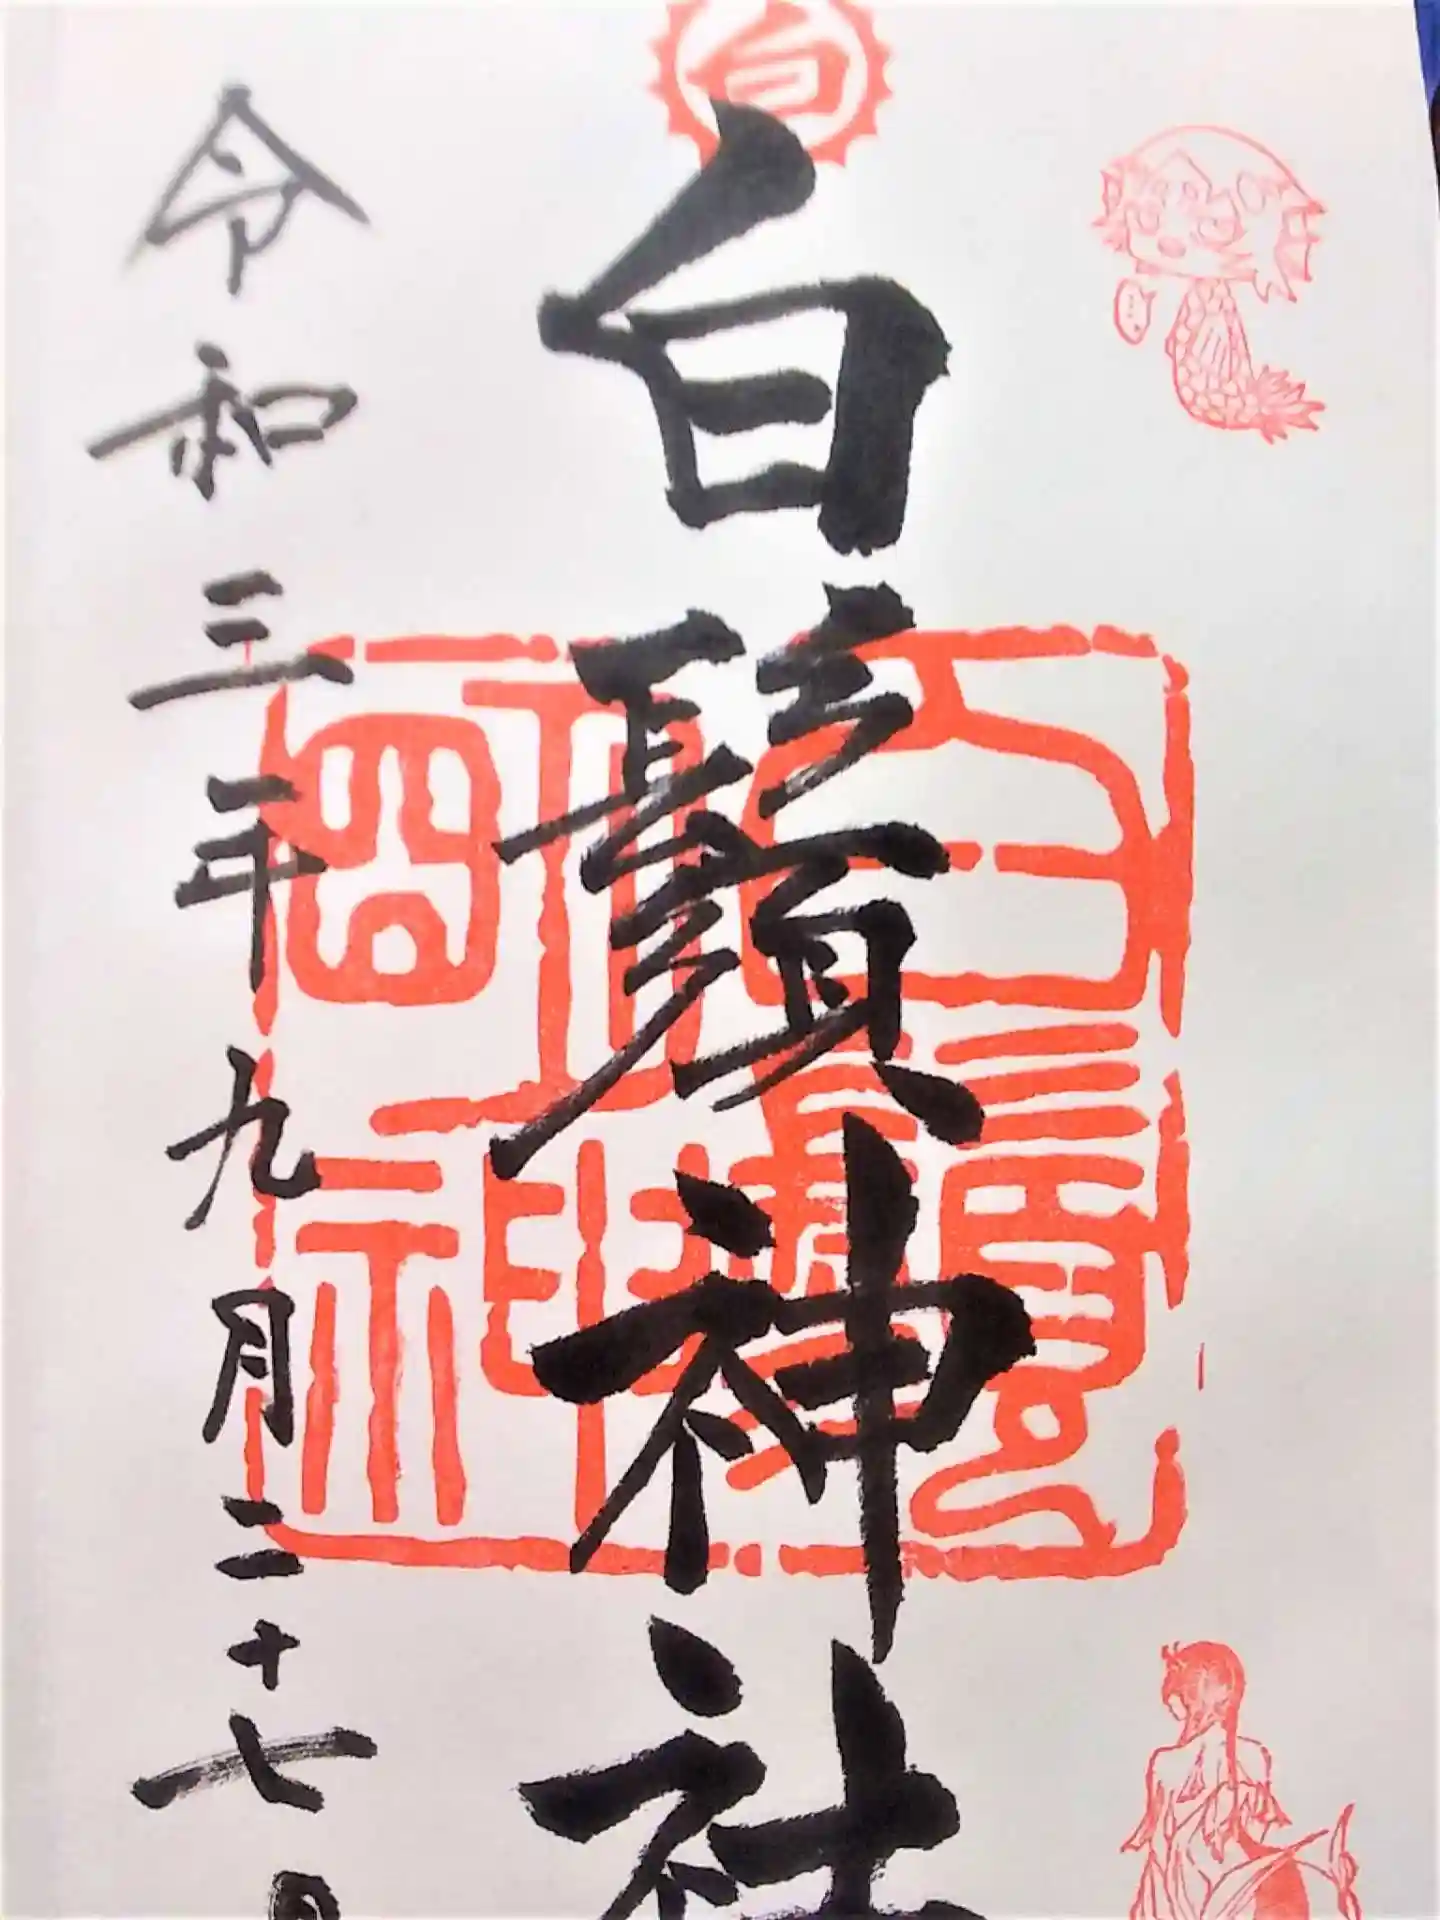 白
白鬚神社
令和三年九月二十七日
白鬚神社印